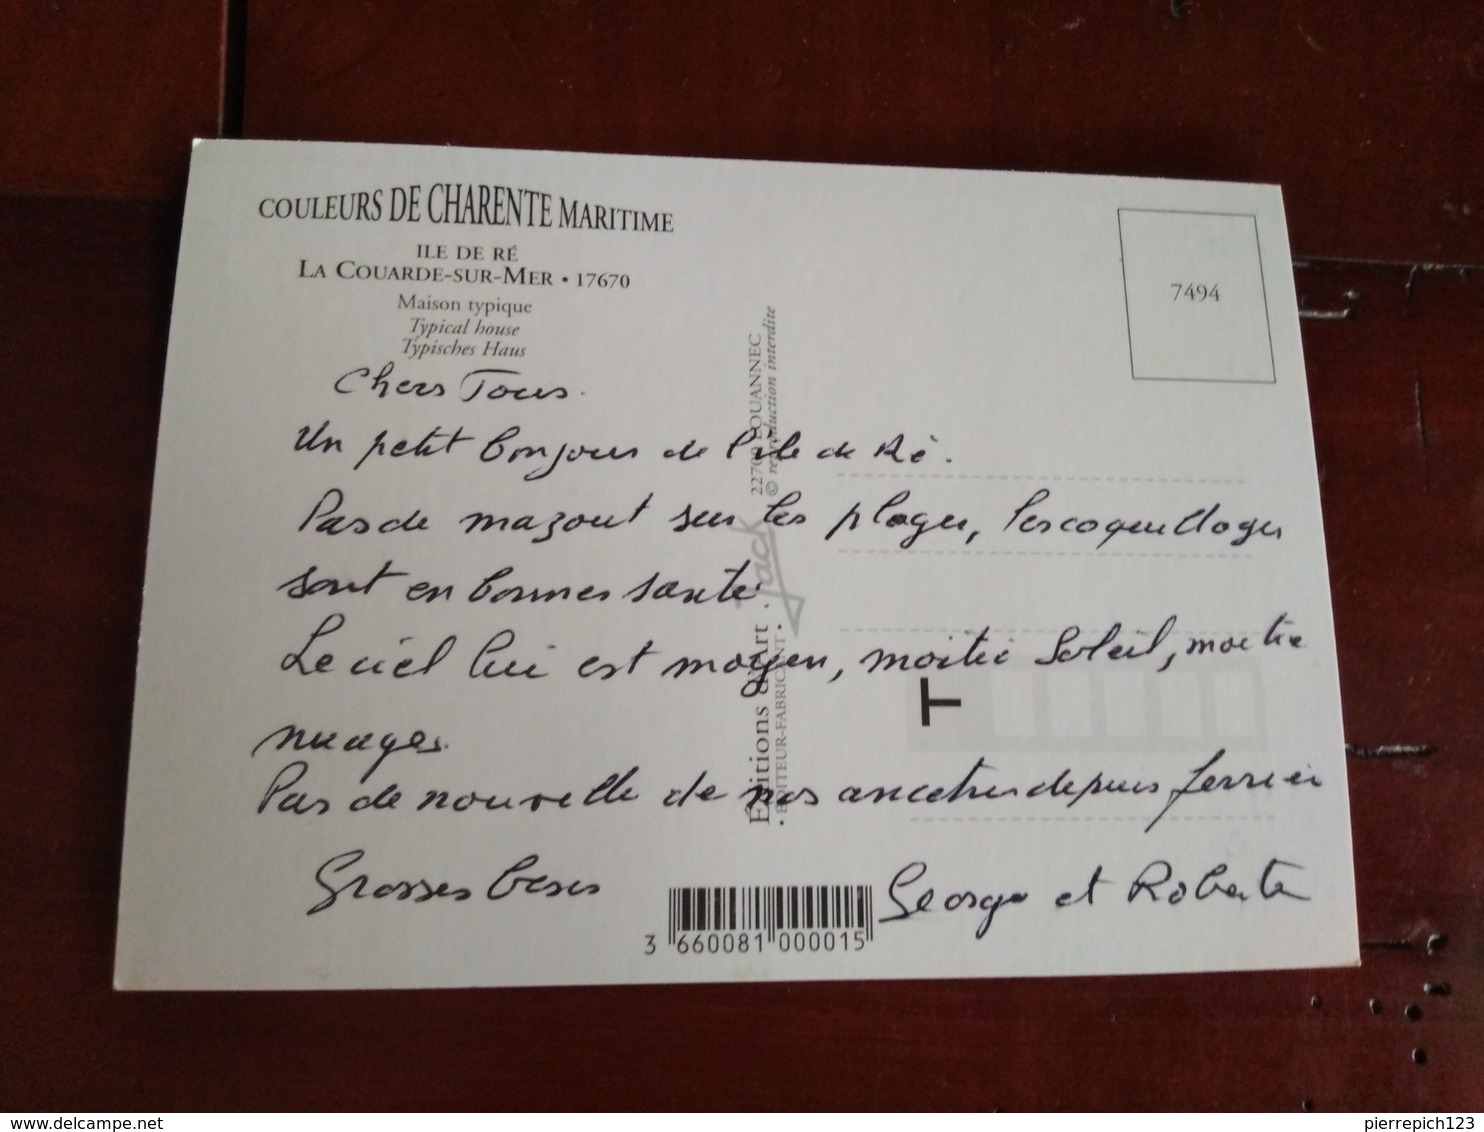 COULEURS DE CHARENTE MARITIME
ILE DE RÉ
LA COUARDE-SUR-MER • 17670
Maison typique
Typical house
Typisches Haus
7494
Chers Tous.
Un petit bonjour de l'ile de Ré.
Pas de mazout sur les plages, les coquillages
sont en bonnes santé
Le ciel lui est moyen, moitié Soleil, moitié
nuages.
Pas de nouvelle de nos ancetres depuis ferrier
Grosses bises
George et Roberte
Éditions d'Art Jack 22700 LOUANNEC
• ÉDITEUR-FABRICANT • © reproduction interdite
T
3 660081 000015
pierrepich123